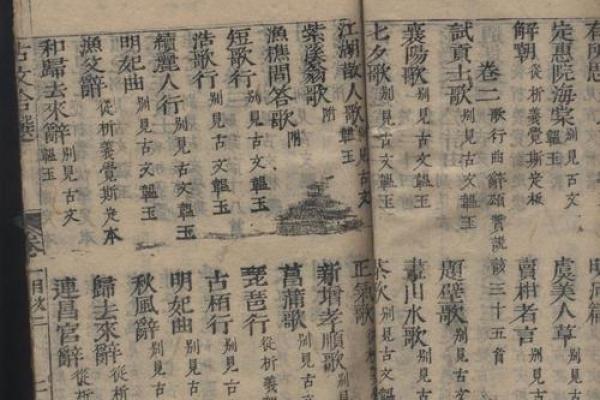 有所思
定惠院海棠 別見古文韞玉 虞美人草 別見古
解朝 從析義覺斯定板 賣柑者言 別見古
卷二 歌行曲辭頌贊說該三十五首
試貢士歌 別見古文韞玉 題壁歌 別見古
襄陽歌 別見古文韞玉 畫山水歌 別見
七夕歌 別見古文韞玉 茶歌 別見古
江湖散人歌 別見古文韞玉 正氣歌
紫溪翁歌 附 新增孝順歌 別見古
漁樵問答歌 附 菖蒲歌 別見古
短歌行 別見古文韞玉 琵琶行 從析義
浩歌行 別見古文韞玉 古栢行 別見古
續麗人行 別見古文韞玉 明妃曲 別見古
明妃曲 別見古文韞玉 秋風辭 別見古
漁父辭 從析義覺斯定本 歸去來辭 從析
和歸去來辭 別見古文韞玉 連昌宮辭 從析
古文合選 卷 目次